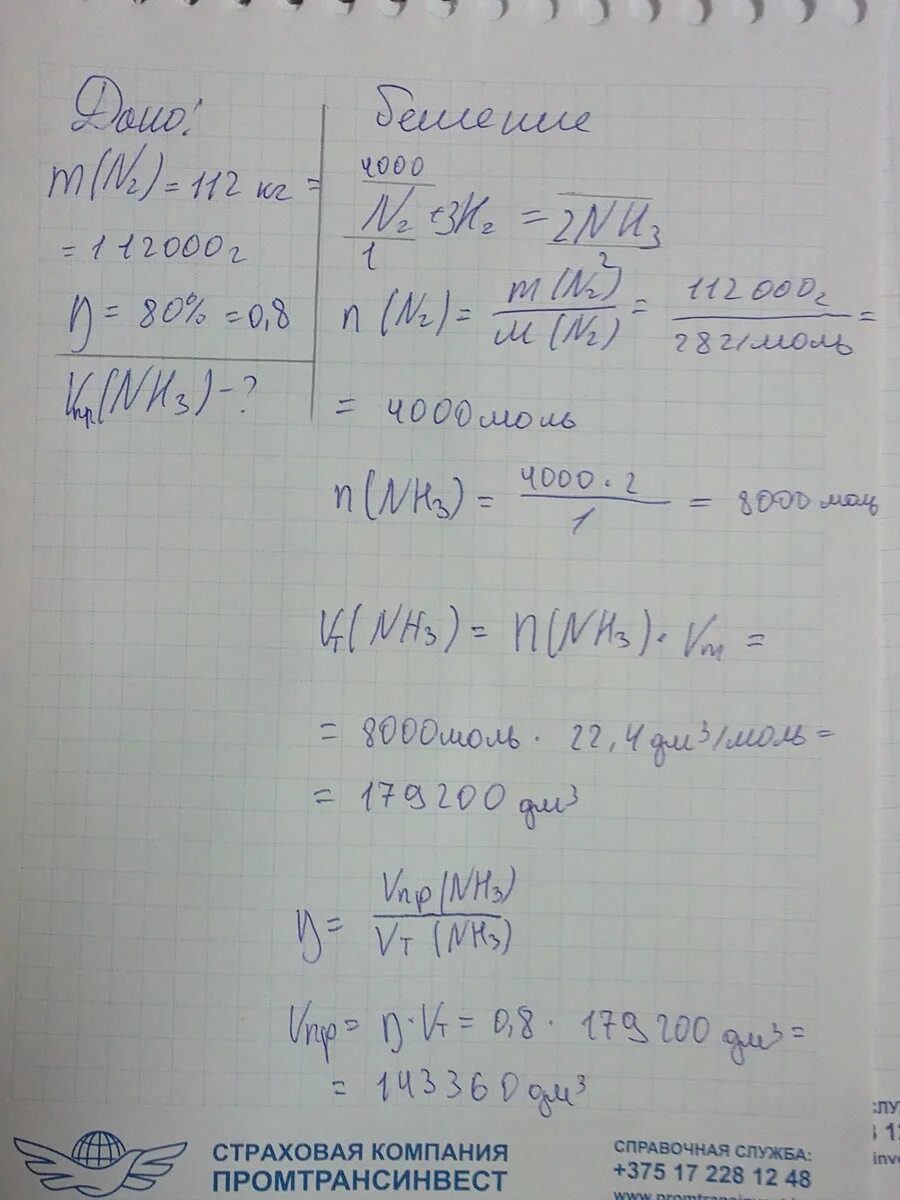 Дано:
m(N₂) = 112 кг =
= 112000 г
η = 80% = 0,8
Vпр(NH₃) - ?
Решение
4000
N₂ + 3H₂ = 2NH₃
1 2
n(N₂) = m(N₂) / M(N₂) = 112000 г / 28 г/моль =
= 4000 моль
n(NH₃) = 4000 · 2 / 1 = 8000 моль
Vт(NH₃) = n(NH₃) · Vm =
= 8000 моль · 22,4 дм³/моль =
= 179200 дм³
η = Vпр(NH₃) / Vт(NH₃)
Vпр = η · Vт = 0,8 · 179200 дм³ =
= 143360 дм³
СТРАХОВАЯ КОМПАНИЯ
ПРОМТРАНСИНВЕСТ
СПРАВОЧНАЯ СЛУЖБА:
+375 17 228 12 48